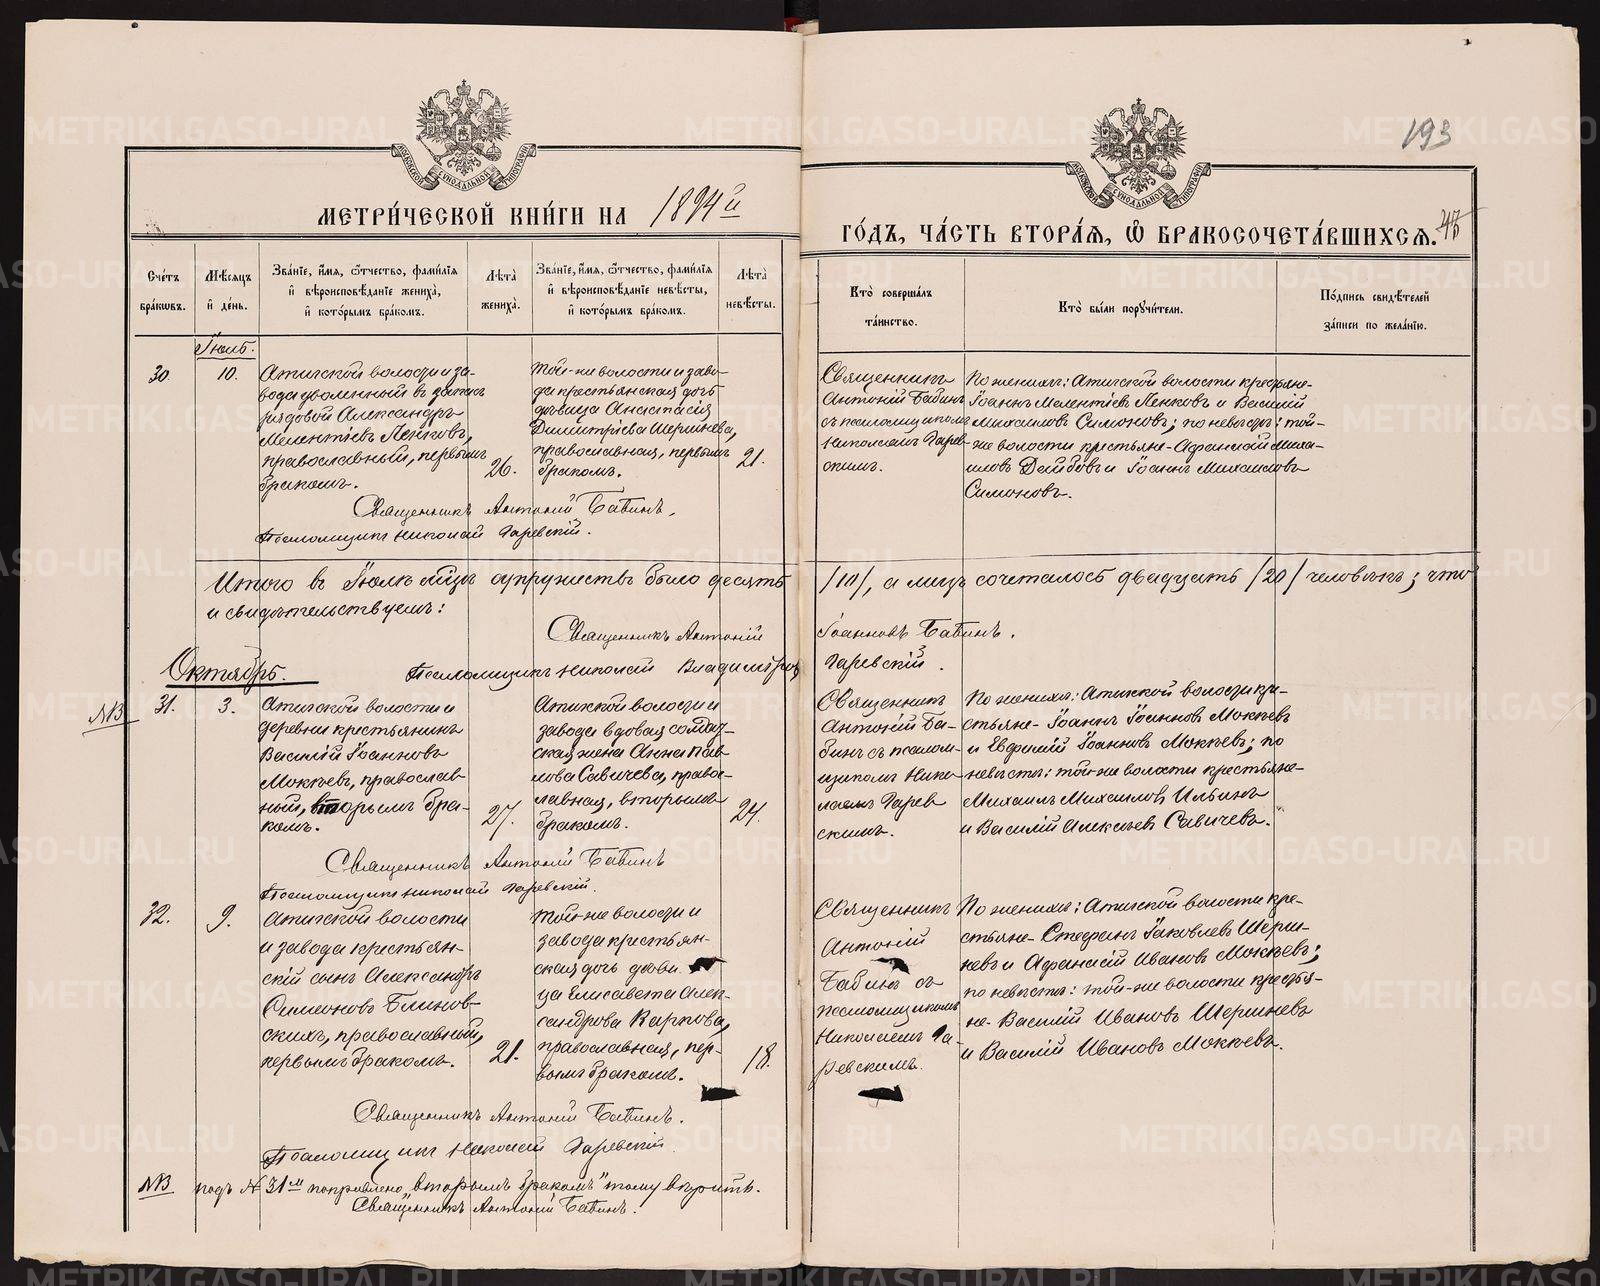 193
МЕТРИ́ЧЕСКОЙ КНИ́ГИ НА 1894й
ГО́ДЪ, ЧА́СТЬ ВТОРА́Я, Ѡ БРАКОСОЧЕТА́ВШИХСЯ.
Сче́тъ бра́ковъ.
Мѣ́сяцъ и де́нь.
Зва́нїе, и́мя, о́тчество, фами́лїя и вѣроисповѣ́данїе жениха̀, и кото́рымъ бра́комъ.
Лѣта̀ жениха̀.
Зва́нїе, и́мя, о́тчество, фами́лїя и вѣроисповѣ́данїе невѣ́сты, и кото́рымъ бра́комъ.
Лѣта̀ невѣ́сты.
Кто̀ соверша́лъ та́инство.
Кто̀ бы́ли поручи́тели.
По́дпись свидѣ́телей за́писи по жела́нїю.
Іюль.
30.
10.
Атигской волости и за-
вода уволенный въ запасъ
рядовой Александръ
Мелентіевъ Пенковъ,
православный, первымъ
бракомъ.
26.
Той-же волости и заво-
да крестьянская дочь
дѣвица Анастасія
Димитріева Шершнева,
православная, первымъ
бракомъ.
21.
Священникъ
Антоній Бабинъ
съ псаломщикомъ
Николаемъ Гарев-
скимъ.
По женихѣ: Атигской волости крестьяне-
Іоаннъ Мелентіевъ Пенковъ и Василій
Михаиловъ Симоновъ; по невѣстѣ: той-
же волости крестьяне-Афанасій Миха-
иловъ и Іоаннъ Михаиловъ
Симоновъ.
Священникъ Антоній Бабинъ.
Псаломщикъ Николай Гаревскій.
Итого въ Іюлѣ мцѣ супружествъ было десять /10/, а лицъ сочеталось двадцать /20/ человѣкъ; что
и свидѣтельствуемъ:
Священникъ Антоній Іоанновъ Бабинъ.
Псаломщикъ Николай Владиміровъ Гаревскій.
Октябрь.
NB
31.
3.
Атигской волости и
деревни крестьянинъ
Василій Іоанновъ
Мокѣевъ, православ-
ный, вторымъ бра-
комъ.
27.
Атигской волости и
завода вдовая солдат-
ская жена Анна Пав-
лова Савичева, право-
славная, вторымъ
бракомъ.
24.
Священникъ
Антоній Ба-
бинъ съ псалом-
щикомъ Нико-
лаемъ Гарев
скимъ.
По женихѣ: Атигской волости кре-
стьяне-Іоаннъ Іоанновъ Мокѣевъ
и Евфимій Іоанновъ Мокѣевъ; по
невѣстѣ: той-же волости крестьяне-
Михаилъ Михаиловъ Ильинъ
и Василій Алексѣевъ Савичевъ.
Священникъ Антоній Бабинъ
Псаломщикъ Николай Гаревскій.
32.
9.
Атигской волости
и завода крестьян-
скій сынъ Александръ
Симеоновъ Блинов-
скихъ, православный,
первымъ бракомъ.
21.
Той-же волости и
завода крестьян-
ская дочь дѣви-
ца Елисавета Алек-
сандрова Карпова,
православная, пер-
вымъ бракомъ.
18.
Священникъ
Антоній
Бабинъ съ
псаломщикомъ
Николаемъ Га-
ревскимъ.
По женихѣ: Атигской волости кре-
стьяне-Стефанъ Іаковлевъ Шерш-
невъ и Афанасій Ивановъ Мокѣевъ;
по невѣстѣ: той-же волости крестья-
не-Василій Ивановъ Шершневъ
и Василій Ивановъ Мокѣевъ.
Священникъ Антоній Бабинъ.
Псаломщикъ Николай Гаревскій.
NB подъ № 31м поправлено „вторымъ бракомъ" тому вѣрить.
Священникъ Антоній Бабинъ.
METRIKI.GASO-URAL.RU